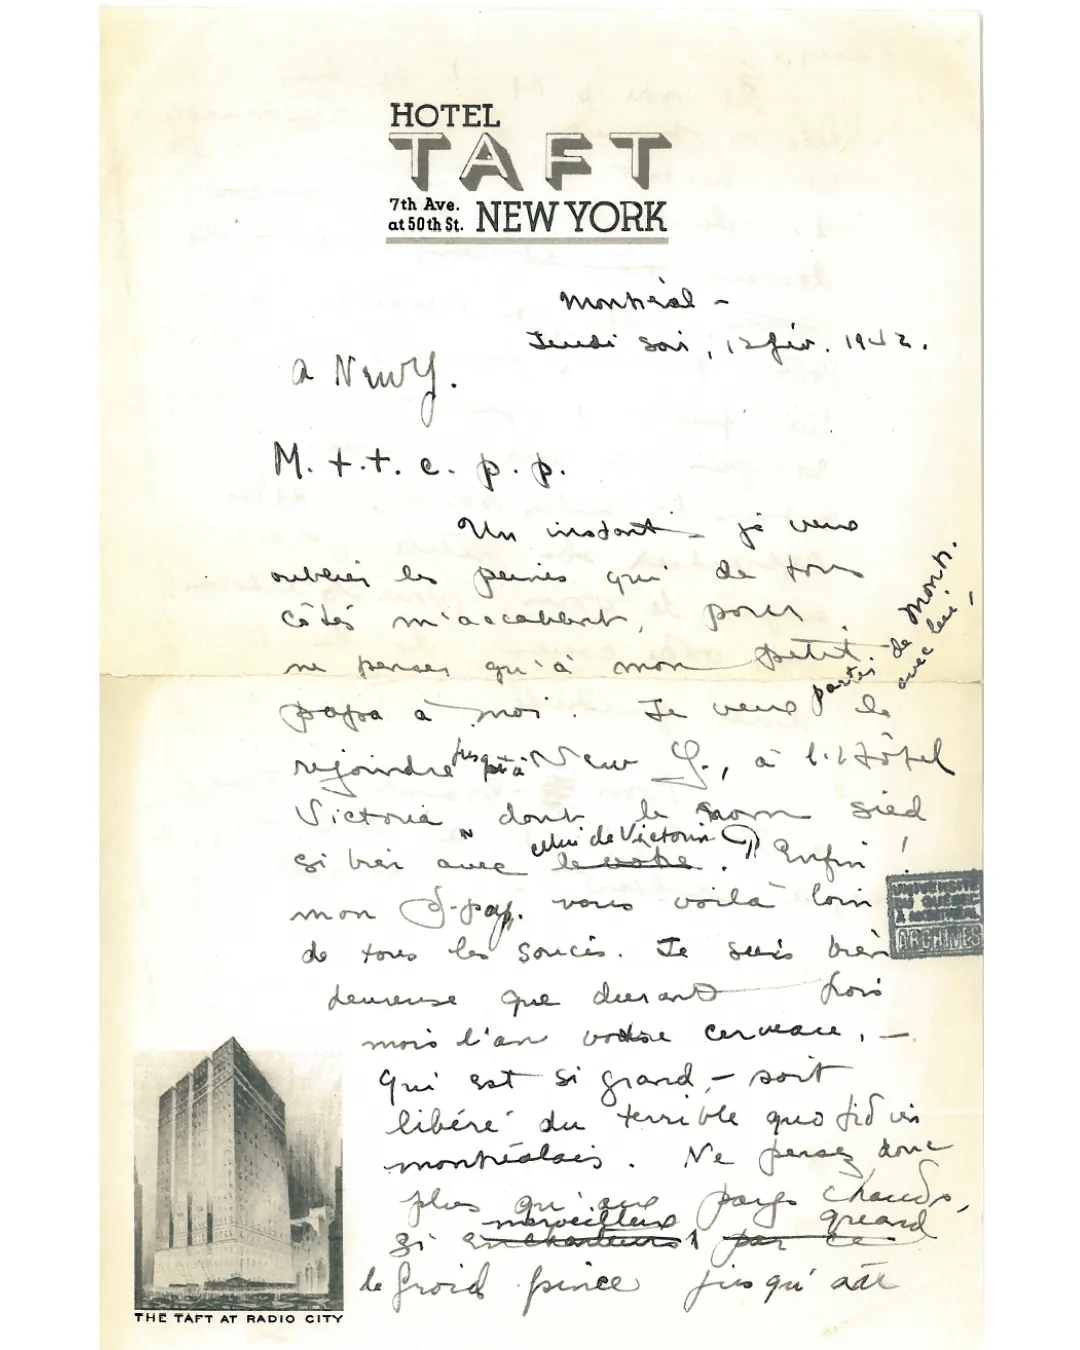 HOTEL
TAFT
7th Ave.
at 50th St. NEW YORK
Montréal –
Jeudi soir, 12 fév. 1942.
à New Y.
M. t. t. c. p. p.
Un instant je veux
oublier les peines qui de tous
côtés m'accablent, pour
ne penser qu'à mon petit
papa à moi. Je veux le
partir de Montr.
avec lui,
rejoindre jusqu'à New Y., à l'Hôtel
Victoria dont le nom sied
si bien avec le vôtre. Enfin!
celui de Victorin
mon p-pap. vous voilà loin
de tous les soucis. Je suis bien
heureuse que durant trois
mois l'an votre cerveau, –
qui est si grand, – soit
libéré du terrible quotidien
montréalais. Ne pensez donc
plus qu'aux pays chauds,
merveilleux quand
si enchanteurs, par ce
le froid pince jusqu'au
UNIVERSITÉ
DU QUÉBEC
À MONTRÉAL
ARCHIVES
THE TAFT AT RADIO CITY